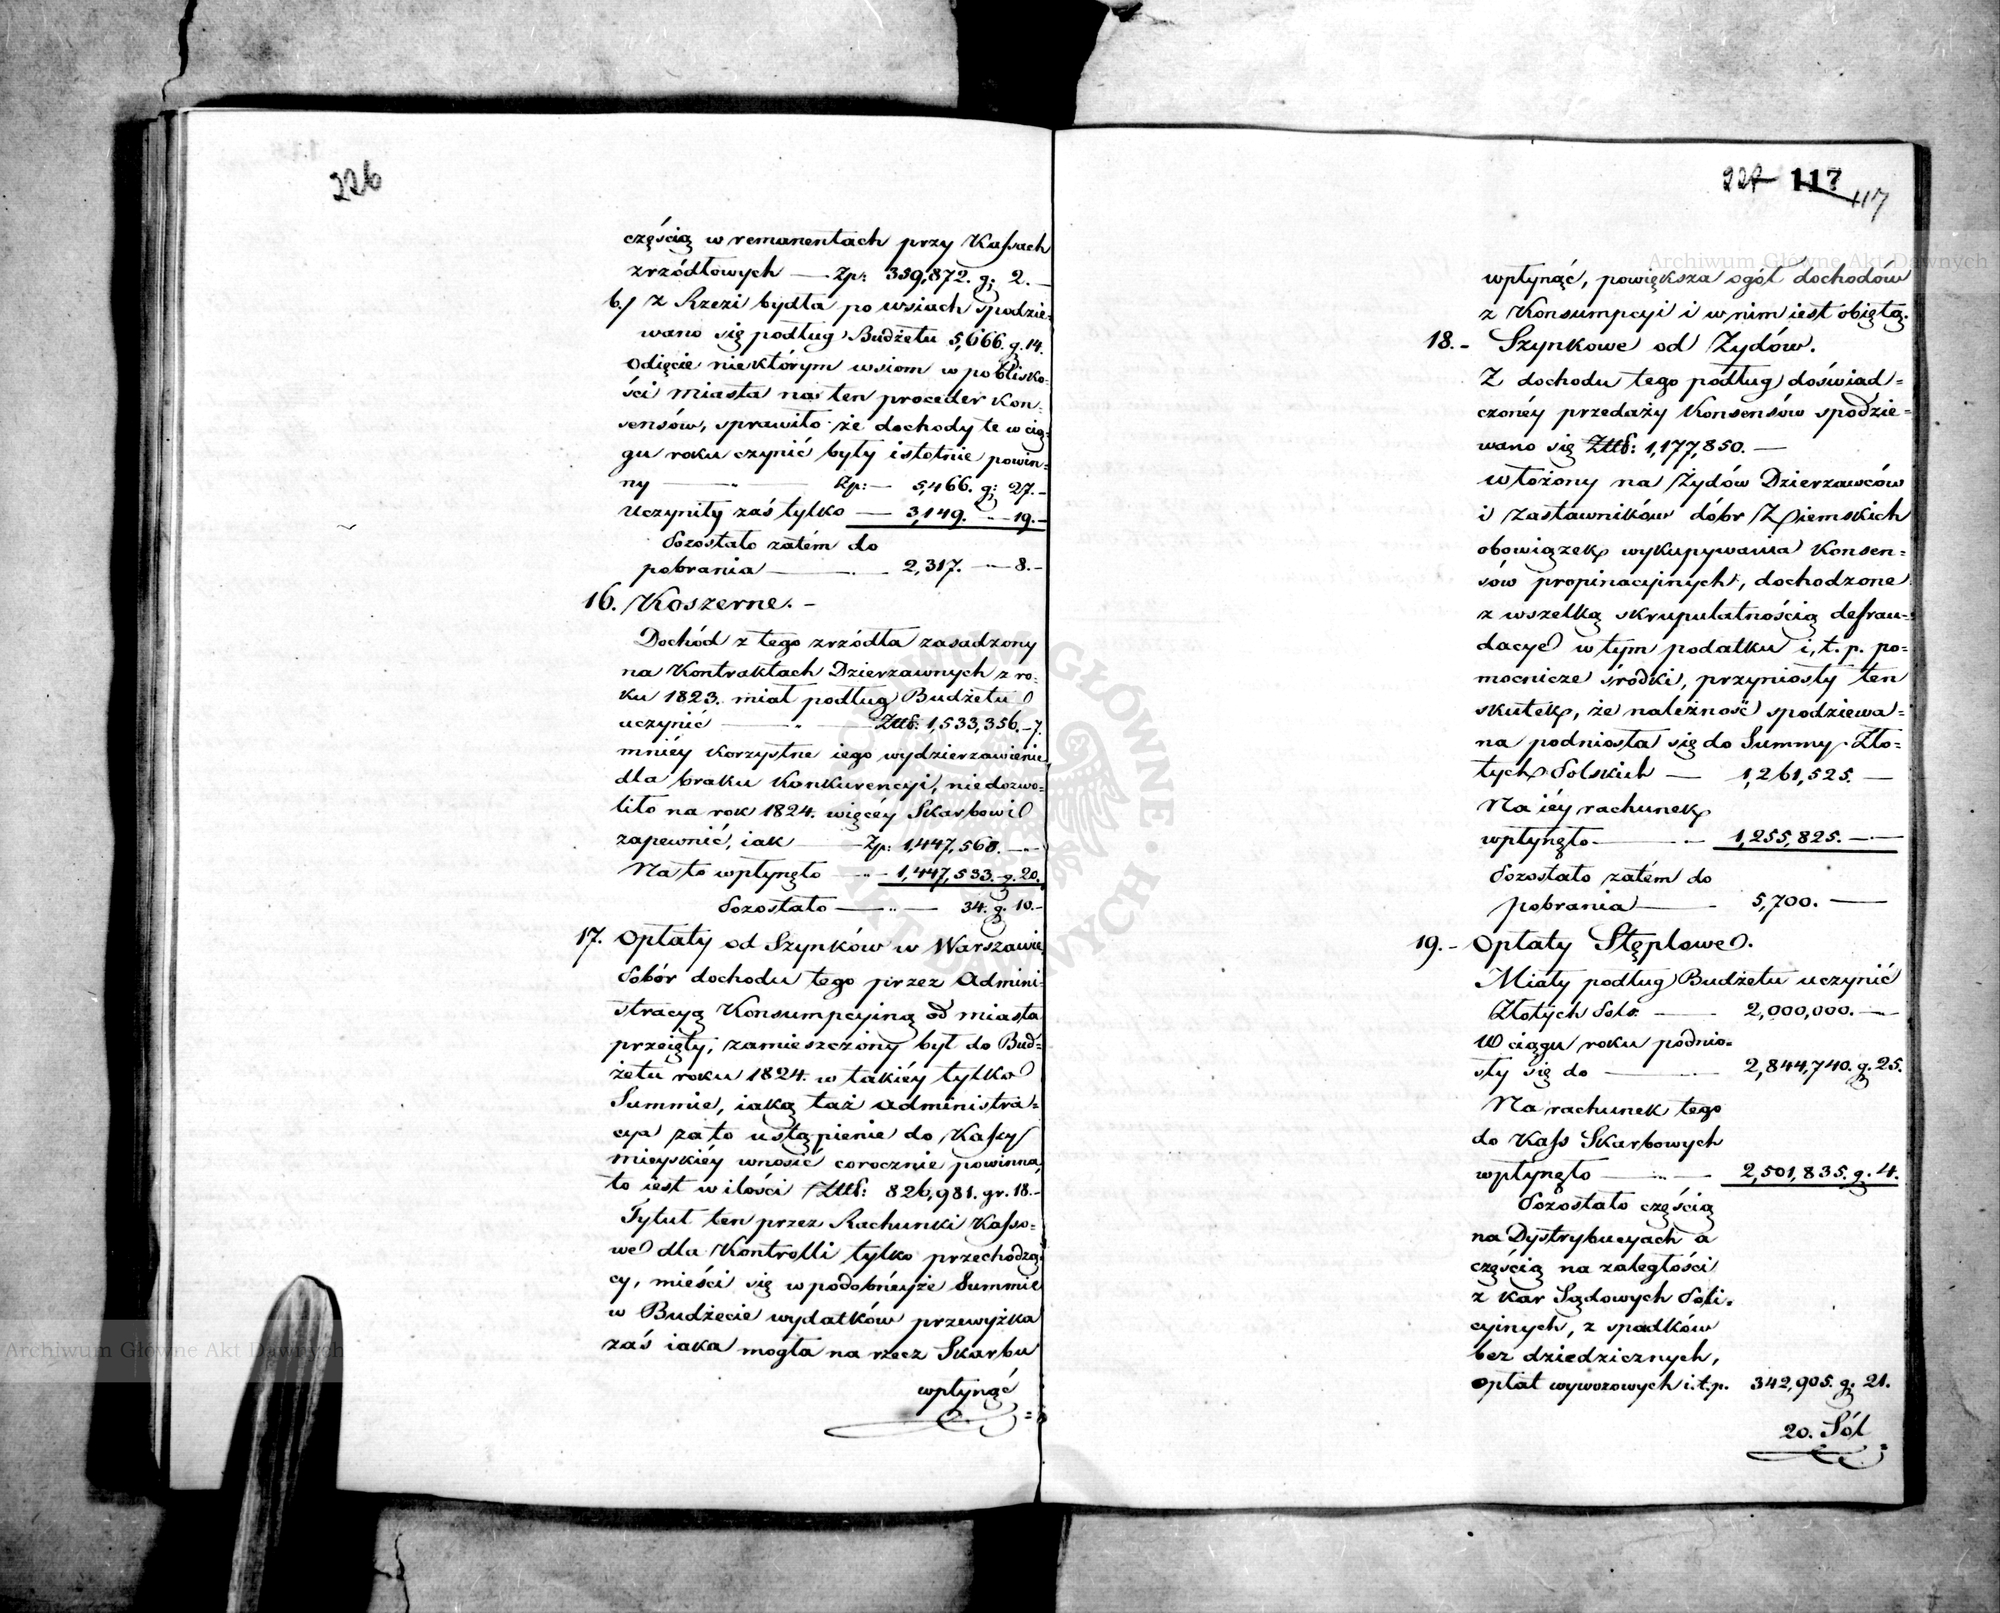 226
częścią w remanentach przy Kassach
zrzódłowych — Zp: 339,872. g: 2. —
b./ z Rzezi bydła po wsiach spodzie-
wano się podług Budżetu 5,666. g. 14.
odięcie niektórym wsiom w poblisko-
ści miasta na ten proceder Kon-
sensów, sprawiło że dochody te w cią-
gu roku czynić były istotnie powin-
ny — " — Zp: — 5,466. g: 27. —
Uczyniły zaś tylko — 3,149. — 19. —
Pozostało zatém do
pobrania — 2,317. — 8. —
16. Koszerne. —
Dochód z tego zrzódła zasadzony
na Kontraktach Dzierzawnych z ro-
ku 1823. miał podług Budżetu
uczynić — " — Złlt: 1,533,356. — 7.
mniéy korzystne iego wydzierzawienie
dla braku Konkurencyi, niedozwo-
liło na rok 1824. więcéy Skarbowi
zapewnić, iak — Zp: 1,447,568. —
Na to wpłynęło — 1,447,533. — g. 20.
Pozostało — " — 34. g. 10. —
17. Opłaty od Szynków w Warszawie
Pobór dochodu tego przez Admini-
stracyą Konsumpcyiną od miasta
przeięty, zamieszczony był do Bud-
żetu roku 1824. w takiéy tylko
Summie, iaką taż administra-
cya za to ustąpienie do Kassy
mieyskiéy wnosić corocznie powinna,
to iest w ilości Złlt: 826,981. gr. 18. —
Tytuł ten przez Rachunki Kasso-
we dla Kontrolli tylko przechodzą-
cy, mieści się w podobnéyże Summie
w Budżecie wydatków przewyżka
zaś iaka mogła na rzecz Skarbu
wpłynąć
227 117
117
wpłynąć, powiększa ogół dochodów
z Konsumpcyi i w nim iest obiętą.
18. - Szynkowe od Żydów.
Z dochodu tego podług doświad-
czonéy przedaży Konsensów spodzie-
wano się Złlt: 1,177,850. —
włożony na Żydów Dzierzawców
i Zastawników dóbr Ziemskich
obowiązek wykupywania Konsen-
sów propinacyinych, dochodzone
z wszelką skrupulatnością defrau-
dacye w tym podatku i, t. p. po-
mocnicze śródki, przyniosły ten
skutek, że należność spodziewa-
na podniosła się do Summy Zło-
tych Polskich — 1,261,525. —
Na iéy rachunek
wpłynęło — 1,255,825. —
Pozostało zatém do
pobrania — 5,700. —
19. - Opłaty Stęplowe.
Miały podług Budżetu uczynić
Złotych Pols: — 2,000,000. —
W ciągu roku podnio-
sły się do — 2,844,740. g. 25.
Na rachunek tego
do Kass Skarbowych
wpłynęło — 2,501,835. g. 4.
Pozostało częścią
na Dystrybucyach a
częścią na zaległości
z kar Sądowych Poli-
cyinych, z spadków
bez dziedzicznych,
opłat wywozowych i.t.p. 342,905. g. 21.
20. Sól
Archiwum Główne Akt Dawnych
Archiwum Główne Akt Dawnych